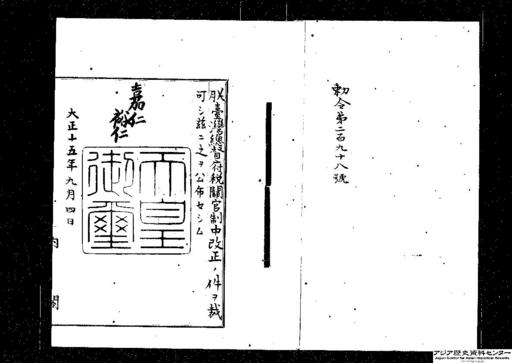 勅令第二百九十八號
朕臺灣總督府税關官制中改正ノ件ヲ裁
可シ玆ニ之ヲ公布セシム
嘉仁
裕仁
天皇
御璽
大正十五年九月四日
内閣
アジア歴史資料センター
Japan Center for Asian Historical Records